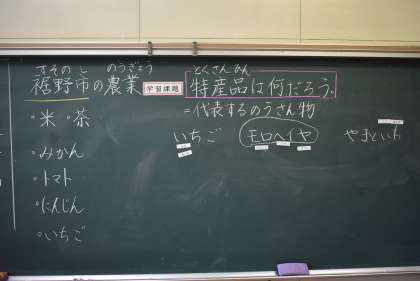 すその し のうぎょう
裾野市の農業
・米 ・茶
・みかん
・トマト
・にんじん
・いちご
学習課題
とくさんひん
特産品は何だろう。
＝代表するのうさん物
いちご
モロヘイヤ
やまといも